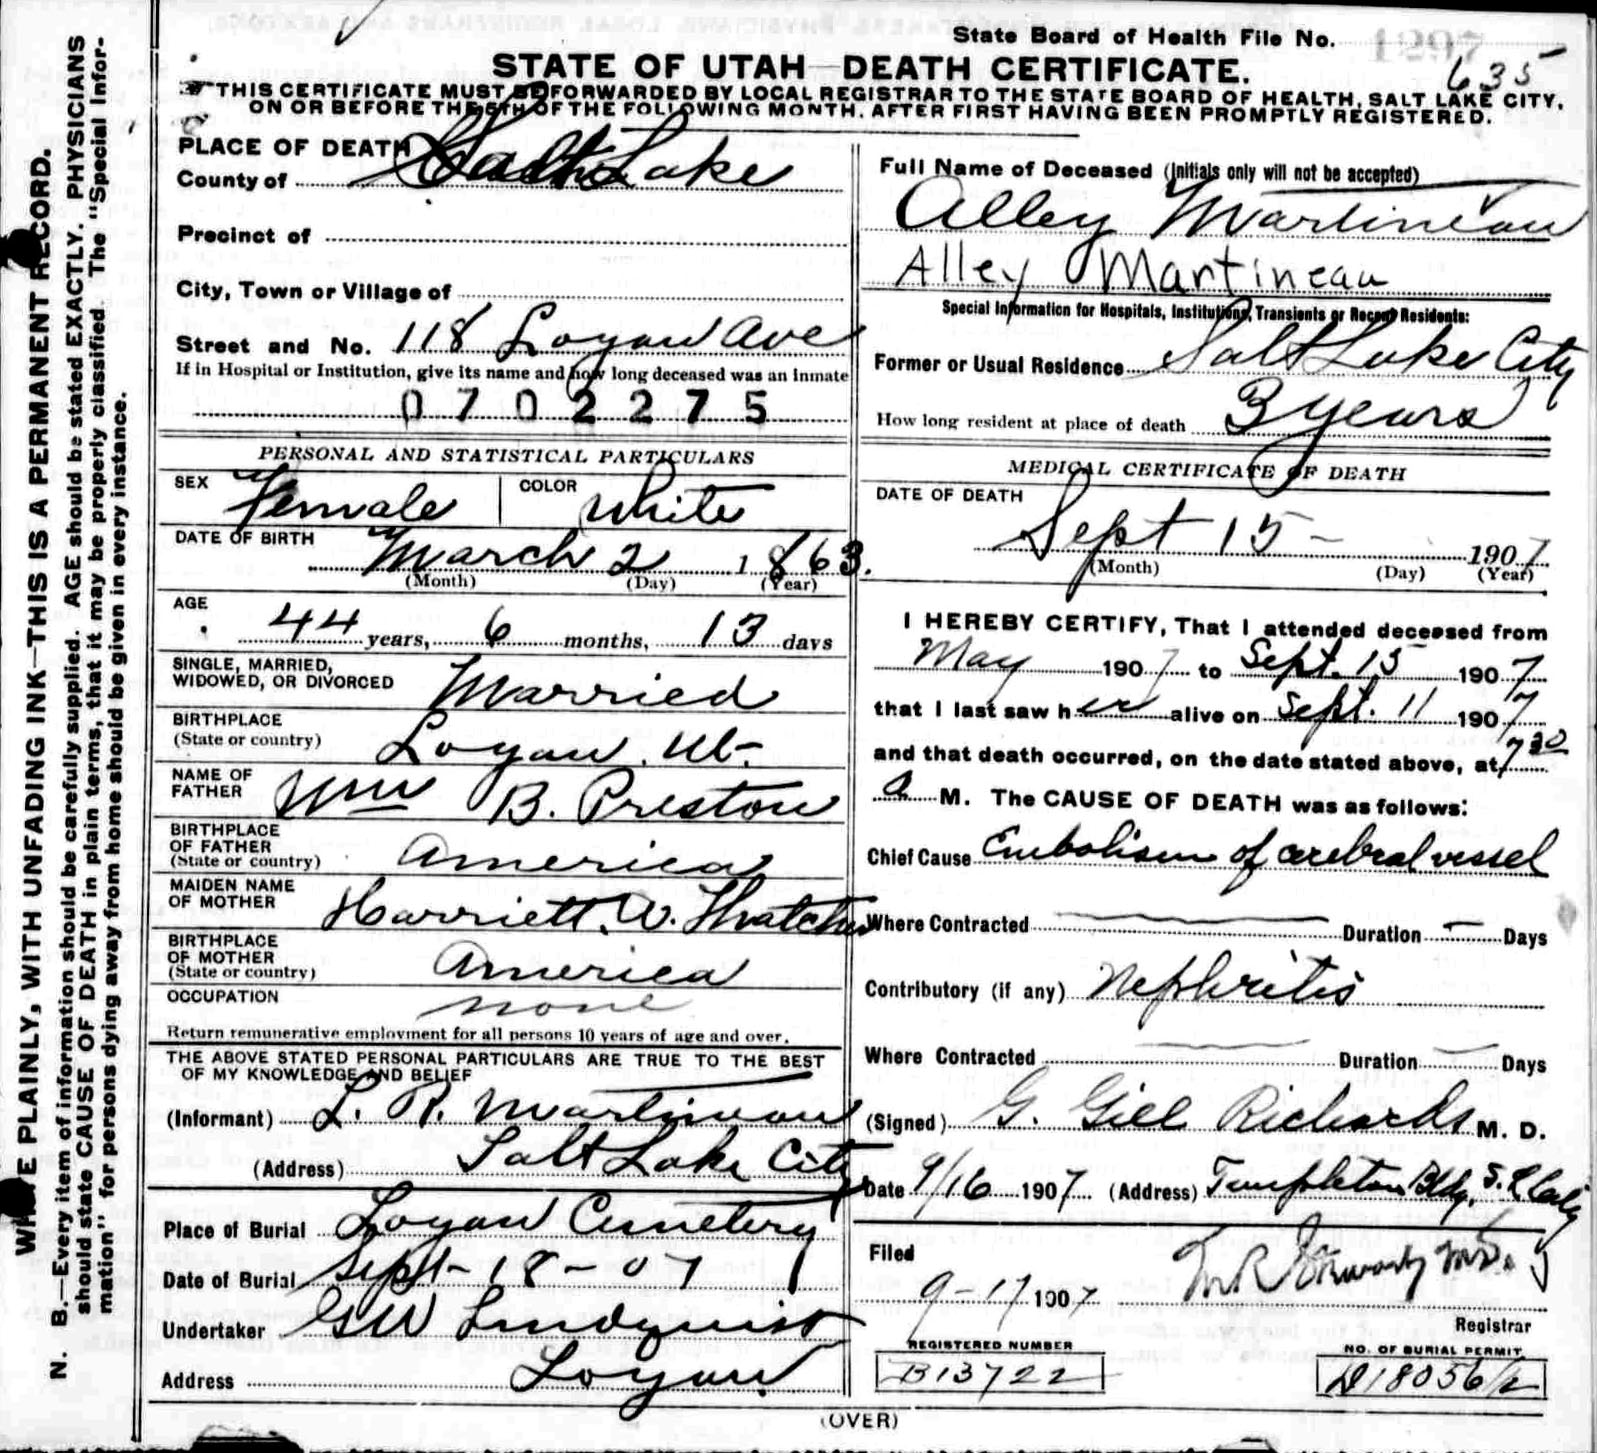 State Board of Health File No.
635
STATE OF UTAH—DEATH CERTIFICATE.
THIS CERTIFICATE MUST BE FORWARDED BY LOCAL REGISTRAR TO THE STATE BOARD OF HEALTH, SALT LAKE CITY,
ON OR BEFORE THE 5TH OF THE FOLLOWING MONTH, AFTER FIRST HAVING BEEN PROMPTLY REGISTERED.
WRITE PLAINLY, WITH UNFADING INK—THIS IS A PERMANENT RECORD.
N. B.—Every item of information should be carefully supplied. AGE should be stated EXACTLY. PHYSICIANS
should state CAUSE OF DEATH in plain terms, that it may be properly classified. The "Special Infor-
mation" for persons dying away from home should be given in every instance.
PLACE OF DEATH
County of Salt Lake
Precinct of
City, Town or Village of
Street and No. 118 Logan Ave
If in Hospital or Institution, give its name and how long deceased was an inmate
0702275
PERSONAL AND STATISTICAL PARTICULARS
SEX Female COLOR White
DATE OF BIRTH March 2 1863.
(Month) (Day) (Year)
AGE 44 years, 6 months, 13 days
SINGLE, MARRIED,
WIDOWED, OR DIVORCED Married
BIRTHPLACE
(State or country) Logan Ut-
NAME OF
FATHER Wm B. Preston
BIRTHPLACE
OF FATHER
(State or country) America
MAIDEN NAME
OF MOTHER Harriett. A. Thatcher
BIRTHPLACE
OF MOTHER
(State or country) America
OCCUPATION none
Return remunerative employment for all persons 10 years of age and over.
THE ABOVE STATED PERSONAL PARTICULARS ARE TRUE TO THE BEST
OF MY KNOWLEDGE AND BELIEF
(Informant) L. R. Martineau
(Address) Salt Lake City
Place of Burial Logan Cemetery
Date of Burial Sept-18-07
Undertaker GW Lindquist
Address Logan
Full Name of Deceased (Initials only will not be accepted)
Alley Martineau
Alley Martineau
Special Information for Hospitals, Institutions, Transients or Recent Residents:
Former or Usual Residence Salt Lake City
How long resident at place of death 3 years
MEDICAL CERTIFICATE OF DEATH
DATE OF DEATH
Sept 15- 1907
(Month) (Day) (Year)
I HEREBY CERTIFY, That I attended deceased from
May 1907 to Sept. 15 1907
that I last saw her alive on Sept. 11 1907
and that death occurred, on the date stated above, at 7 30
a M. The CAUSE OF DEATH was as follows:
Chief Cause Embolism of cerebral vessel
Where Contracted Duration Days
Contributory (if any) Nephritis
Where Contracted Duration Days
(Signed) G. Gill Richards M. D.
Date 9/16 1907 (Address) Templeton Bldg, S. L. City
Filed
9-17 1907
Registrar
REGISTERED NUMBER NO. OF BURIAL PERMIT
B13722 D18056/2
(OVER)